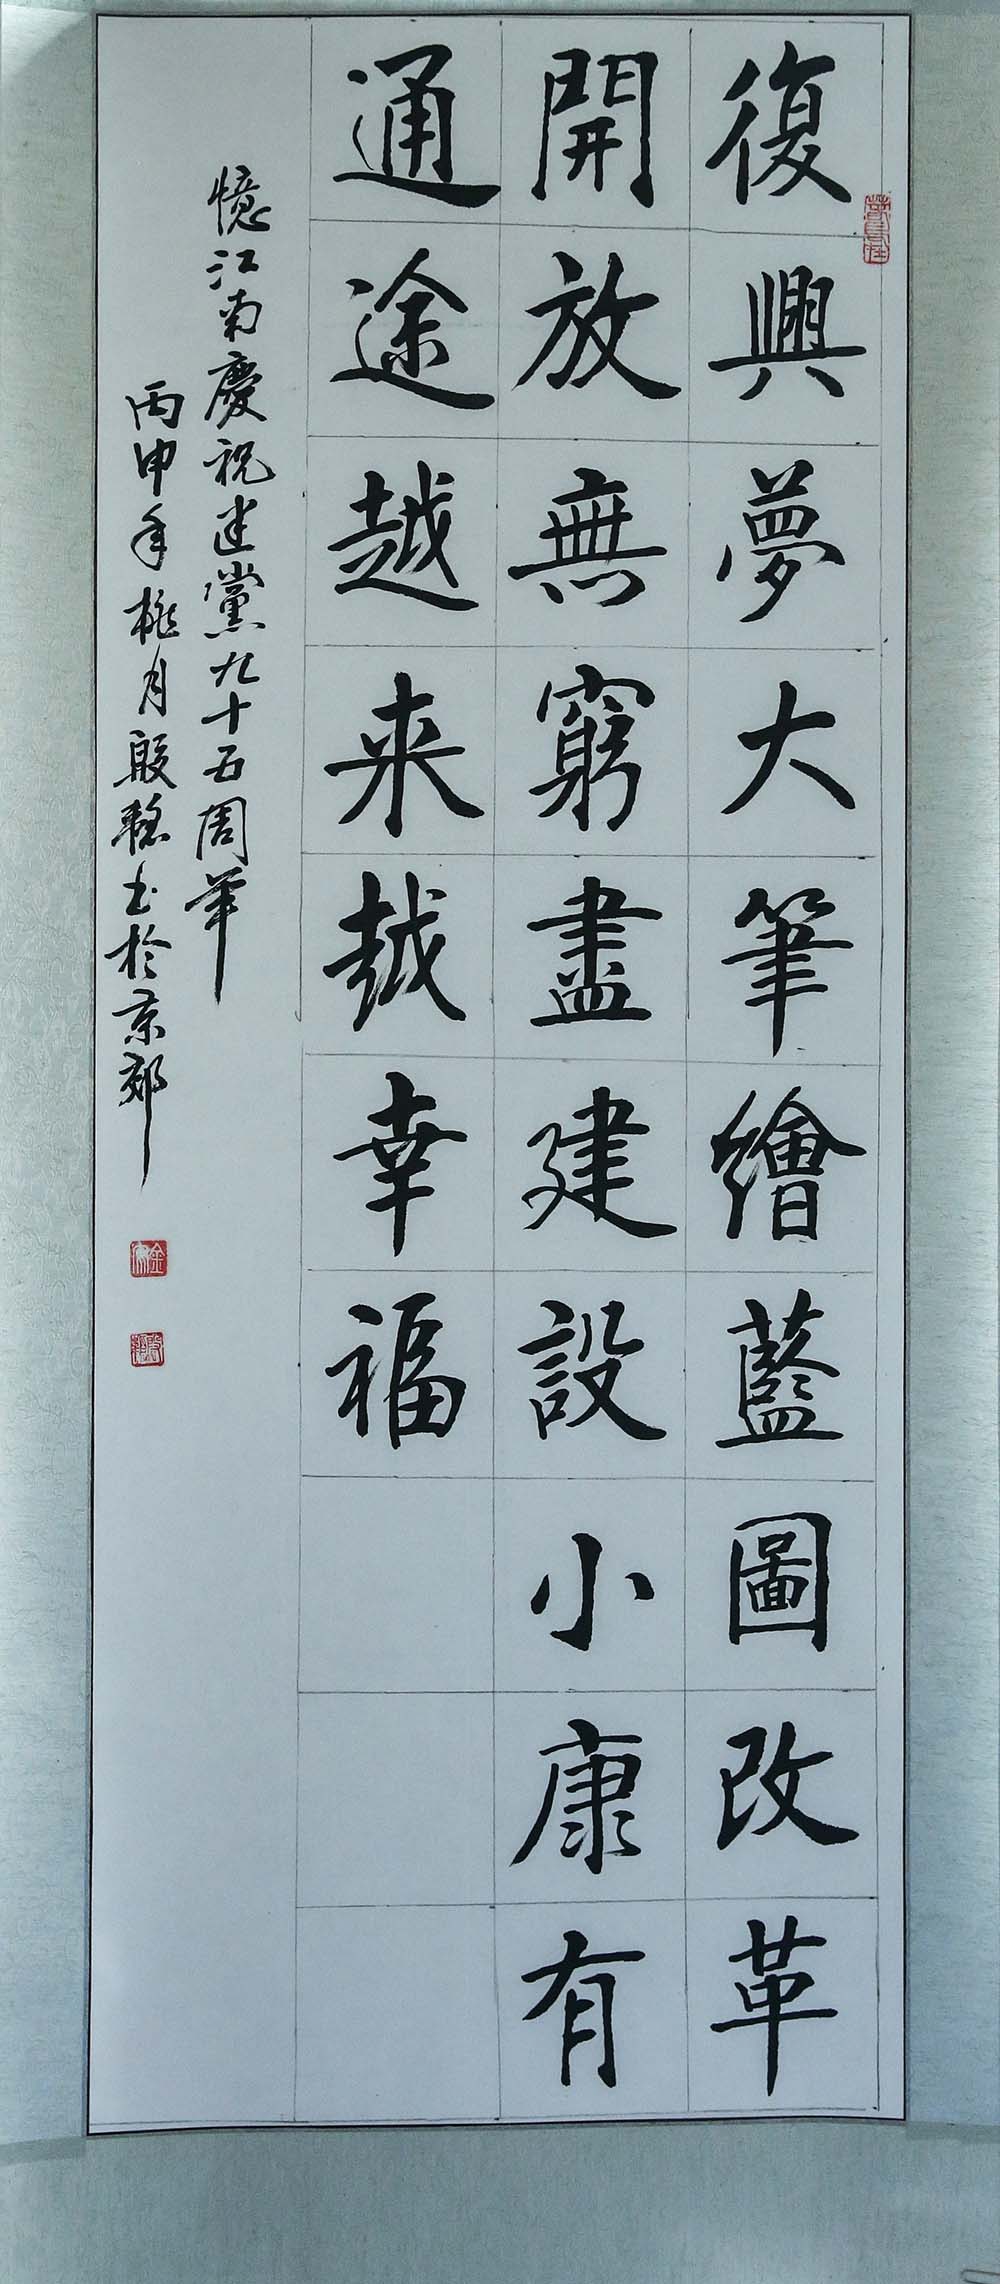 復興夢大筆繪藍圖改革
開放無窮盡建設小康有
通途越来越幸福
憶江南慶祝建黨九十五周年
丙申年桃月殷聡书於京郊